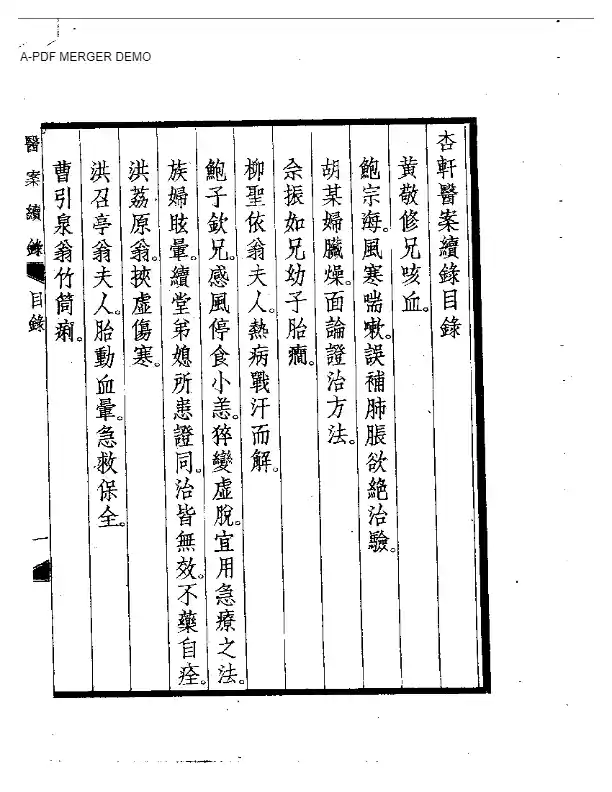 A-PDF MERGER DEMO
杏軒醫案續錄目錄
黃敬修兄咳血。
鮑宗海。風寒喘嗽。誤補肺脹欲絕治驗。
胡某婦臟燥。面論證治方法。
佘振如兄幼子胎癎。
柳聖依翁夫人。熱病戰汗而解。
鮑子欽兄。感風停食小恙。猝變虛脫。宜用急療之法。
族婦眩暈。續堂弟媳所患證同。治皆無效。不藥自痊。
洪荔原翁。挾虛傷寒。
洪召亭翁夫人。胎動血暈。急救保全。
曹引泉翁竹筒痢。
醫案續錄 目錄 一